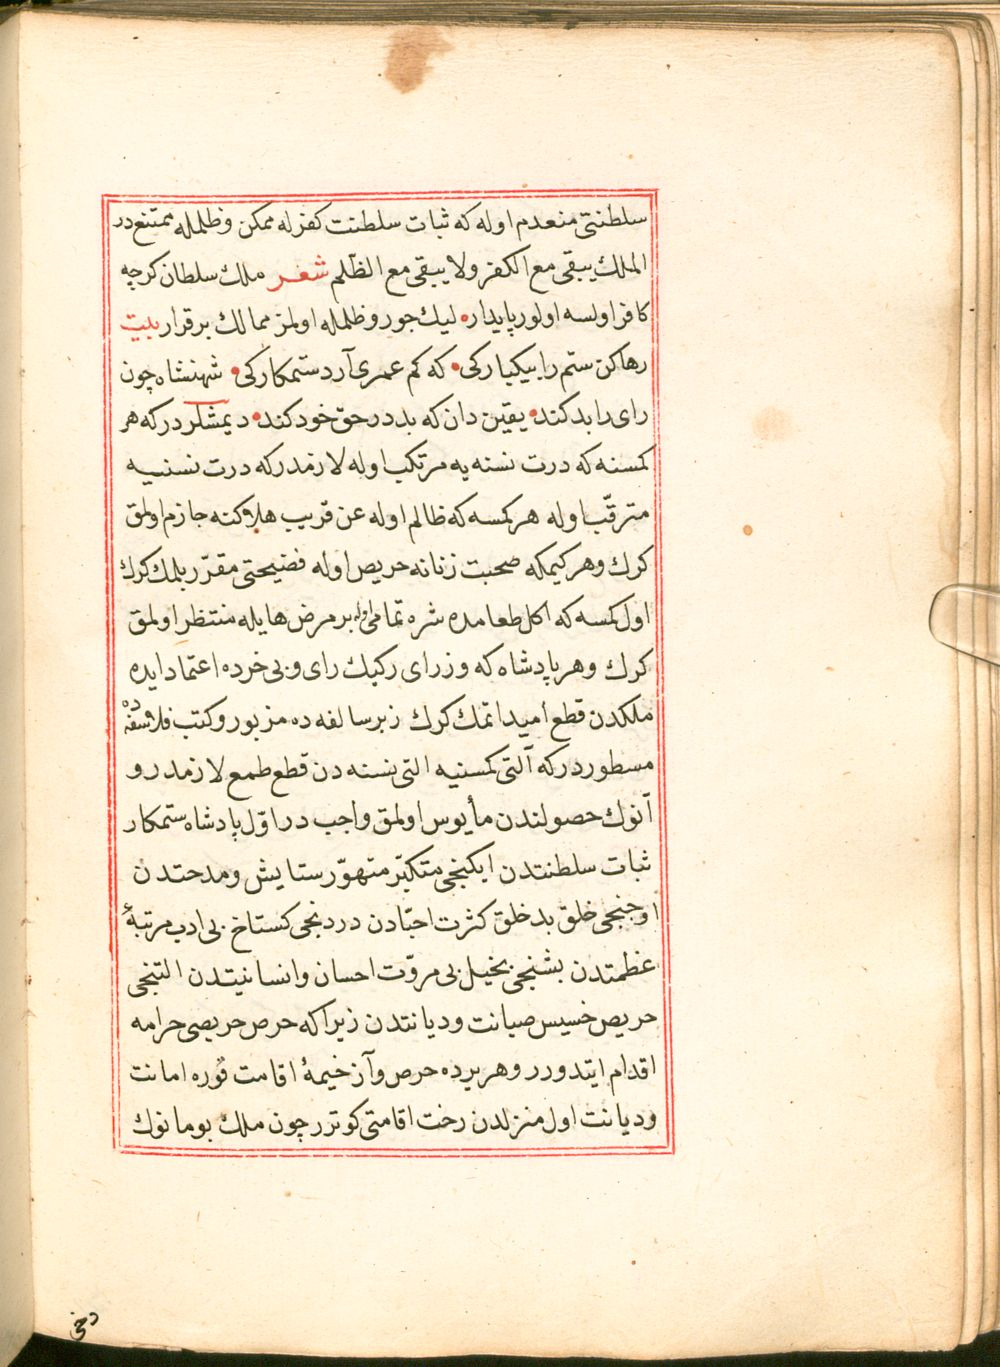 سلطنتی منعدم اوله که ثبات سلطنت کفر له ممکن و ظلمله ممتنع در
الملك یبقی مع الکفر ولا یبقی مع الظلم شعر ملك سلطان کرچه
کافر اولسه اولور پایدار لیك جور و ظلمله اولمز ممالك برقرار بیت
رها کن ستم را بیکبارکی که کم عمری آرد ستمکارکی شهنشاه چون
رای را بد کند یقین دان که بد در حق خود کند دیمشلردر که هر
کمسنه که درت نسنه یه مرتکب اوله لازمدر که درت نسنیه
مترقّب اوله هر کمسه که ظالم اوله عن قریب هلاکنه جازم اولمق
کرك و هر کیمکه صحبت زنانه حریص اوله فضیحتی مقرّر بلمك کرك
اول کمسه که اکل طعامده شره تمامی اوله بر مرض هایله منتظر اولمق
کرك و هر پادشاه که وزرای رکیك رای و بی خرده اعتماد ایده
ملکدن قطع امید اتمك کرك زبر سالفه ده مزبور و کتب فلاسفه ده
مسطوردر که آلتی کمسنیه التی نسنه دن قطع طمع لازمدر و
آنوك حصولندن مأیوس اولمق واجب در اوّل پادشاه ستمکار
ثبات سلطنتدن ایکنجی متکبّر متهوّر ستایش و مدحتدن
اوجنجی خلق بد خلق کثرت احبّادن دردنجی کستاخ بی ادب مرتبۀ
عظمتدن بشنجی بخیل بی مروّت احسان و انسانیتدن التنجی
حریص خسیس صیانت و دیانتدن زیرا که حرص حریصی حرامه
اقدام ایتدورر و هر یرده حرص و آز خیمۀ اقامت قوره امانت
و دیانت اول منزلدن رخت اقامتی کوترر چون ملك بو مانوك
دخی